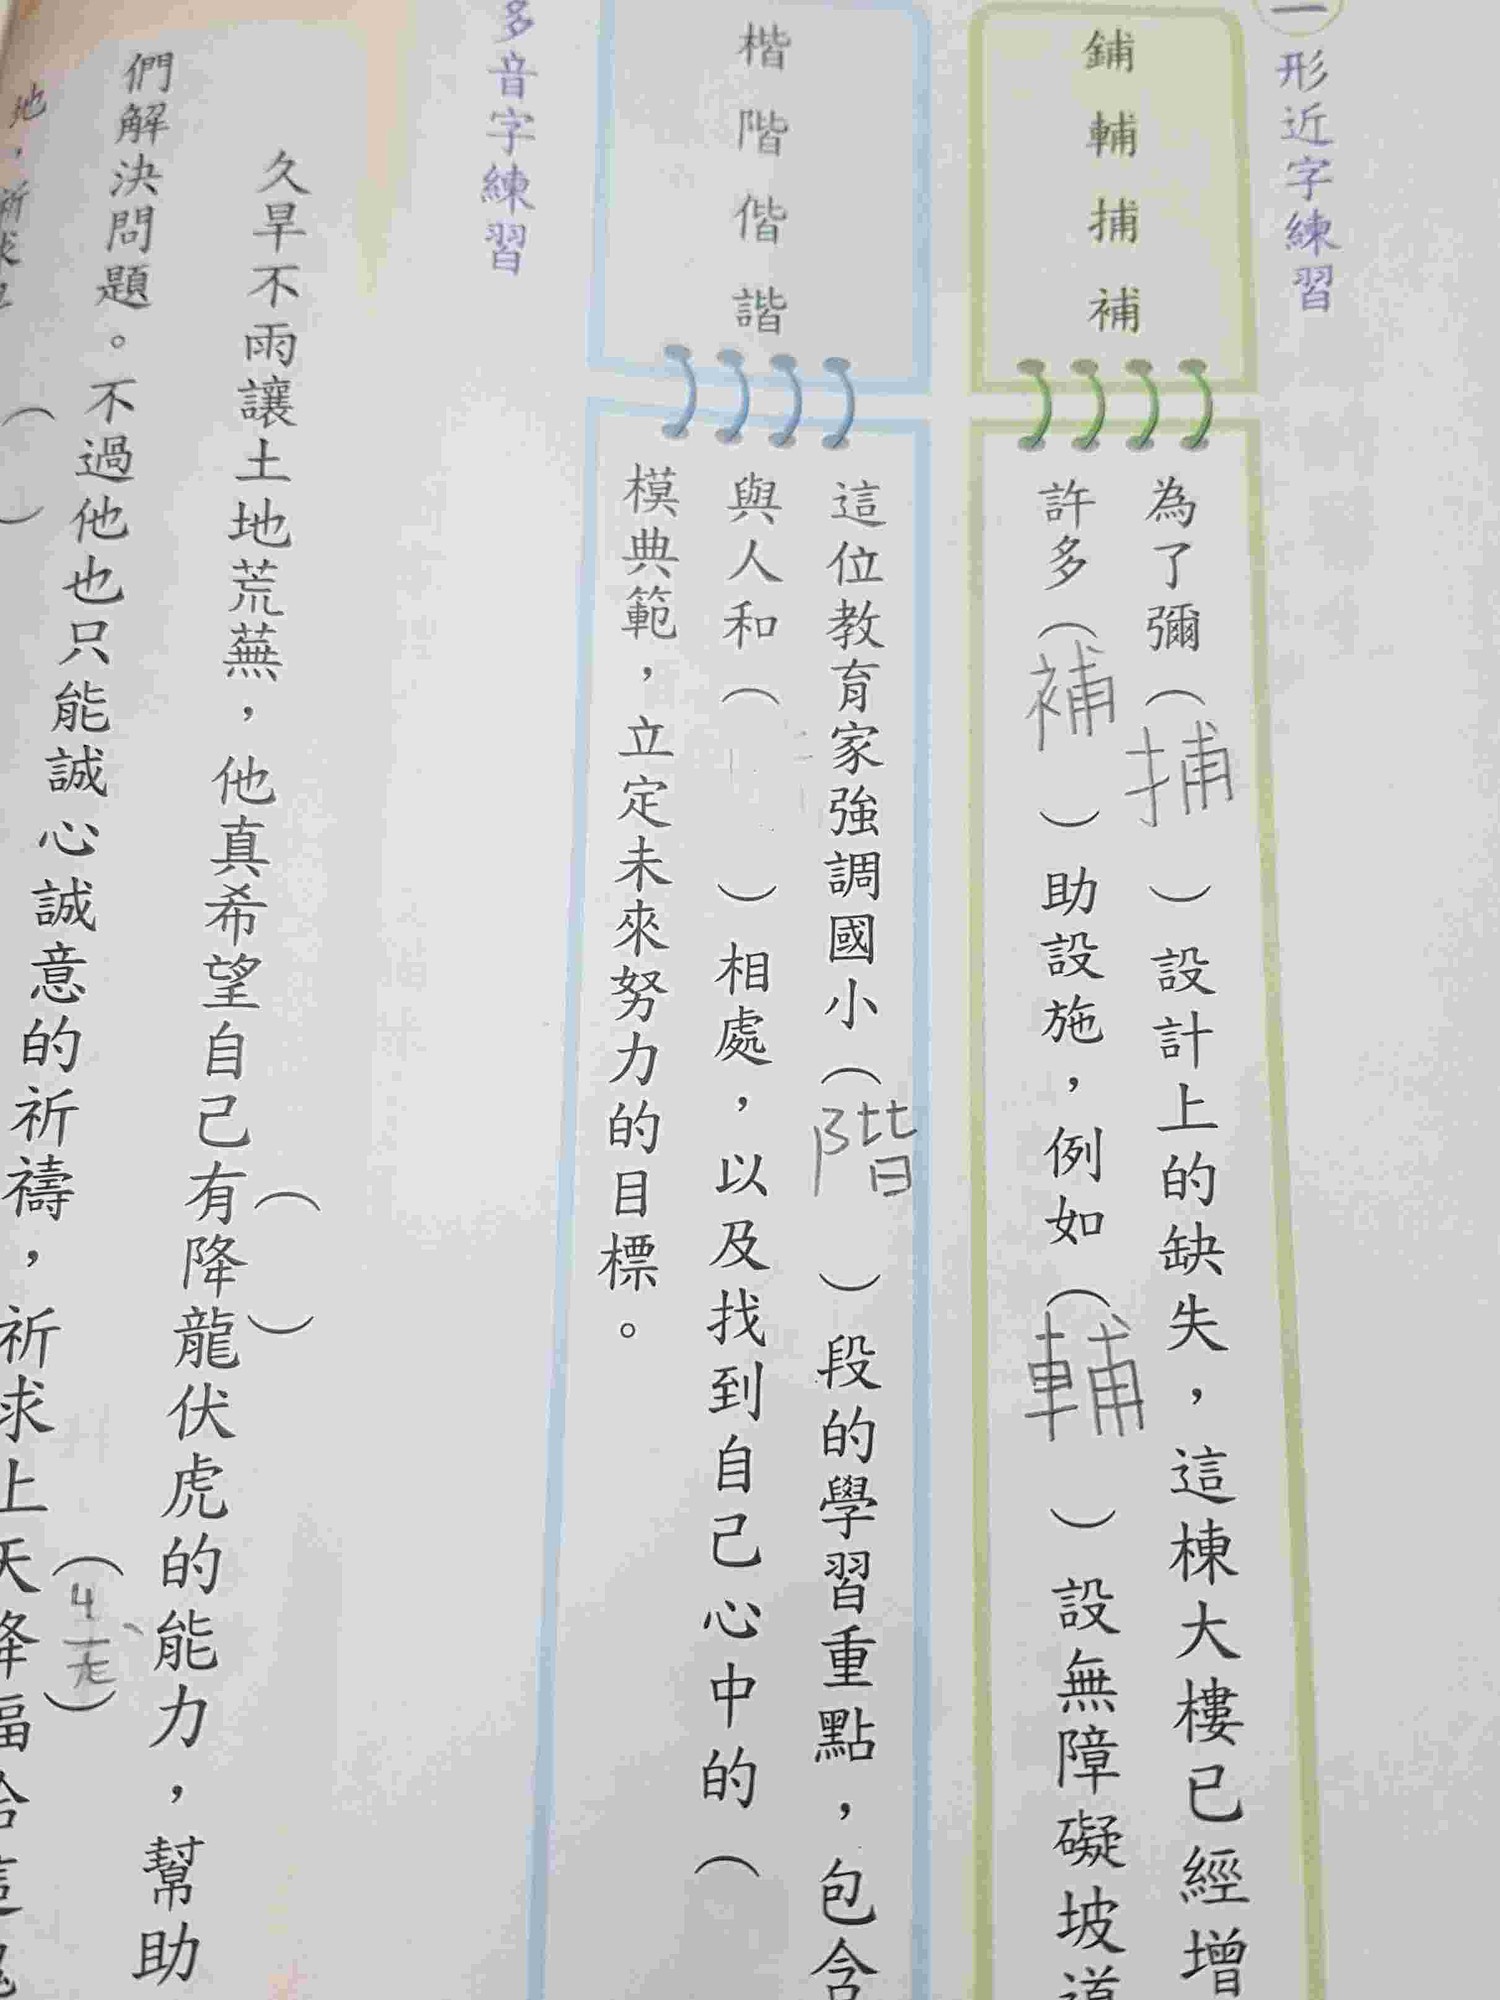 一
形近字練習
鋪輔捕補
為了彌(捕)設計上的缺失，這棟大樓已經增
許多(補)助設施，例如(輔)設無障礙坡道
楷階偕諧
這位教育家強調國小(階)段的學習重點，包含
與人和( )相處，以及找到自己心中的(
模典範，立定未來努力的目標。
多音字練習
久旱不雨讓土地荒蕪，他真希望自己有降龍伏虎的能力，幫助
( )
們解決問題。不過他也只能誠心誠意的祈禱，祈求上天降福給這塊
(ㄐㄧㄤˋ)
地，祈求
( )